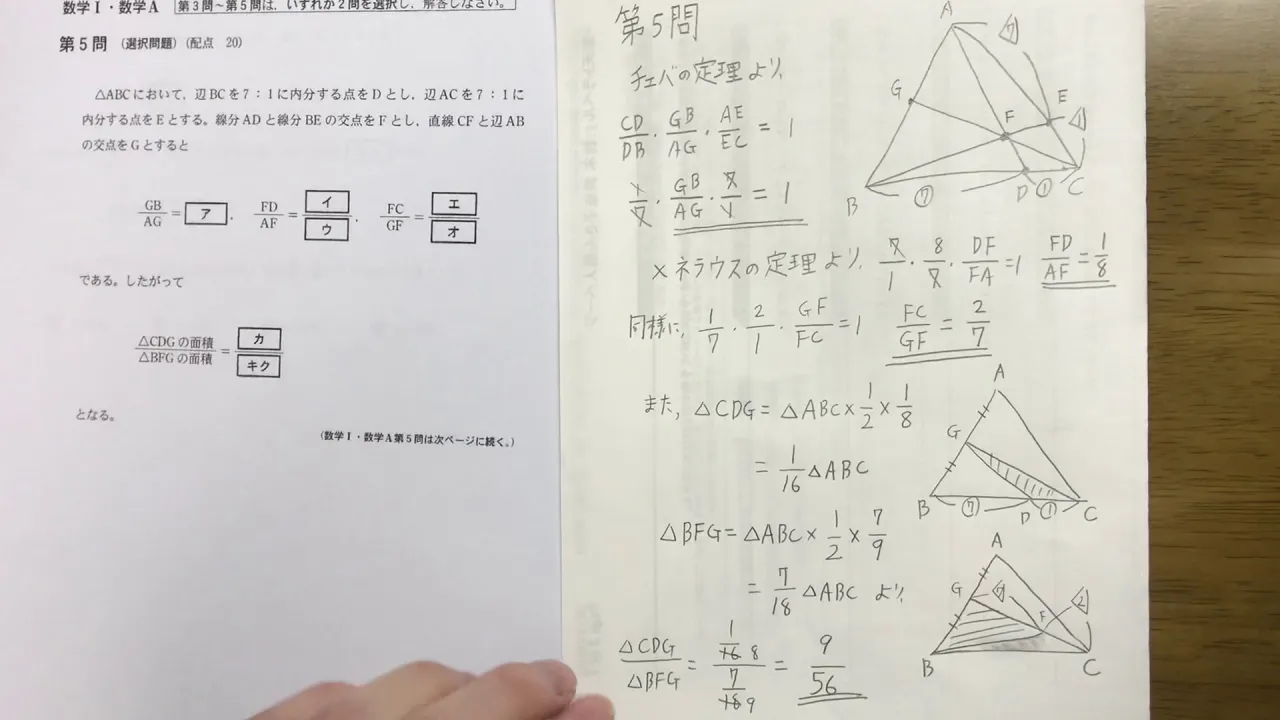 数学Ⅰ・数学A 第3問~第5問は、いずれか2問を選択し、解答しなさい。
第5問 (選択問題) (配点 20)
△ABCにおいて、辺BCを7:1に内分する点をDとし、辺ACを7:1に
内分する点をEとする。線分ADと線分BEの交点をFとし、直線CFと辺AB
の交点をGとすると
GB/AG = ア , FD/AF = イ/ウ , FC/GF = エ/オ
である。したがって
△CDGの面積/△BFGの面積 = カ/キク
となる。
(数学Ⅰ・数学A第5問は次ページに続く。)
第5問
チェバの定理より、
CD/DB・GB/AG・AE/EC = 1
1/7・GB/AG・7/1 = 1
メネラウスの定理より、 7/1・8/7・DF/FA = 1 FD/AF = 1/8
同様に、 1/7・2/1・GF/FC = 1 FC/GF = 2/7
また、△CDG = △ABC × 1/2 × 1/8
= 1/16 △ABC
△BFG = △ABC × 1/2 × 7/9
= 7/18 △ABC より、
△CDG/△BFG = (1/16 8)/(7/18 9) = 9/56
A
⑦
G
E
F
①
B
⑦
D
①
C
A
G
B
⑦
D
①
C
A
G
⑦
F
②
B
C